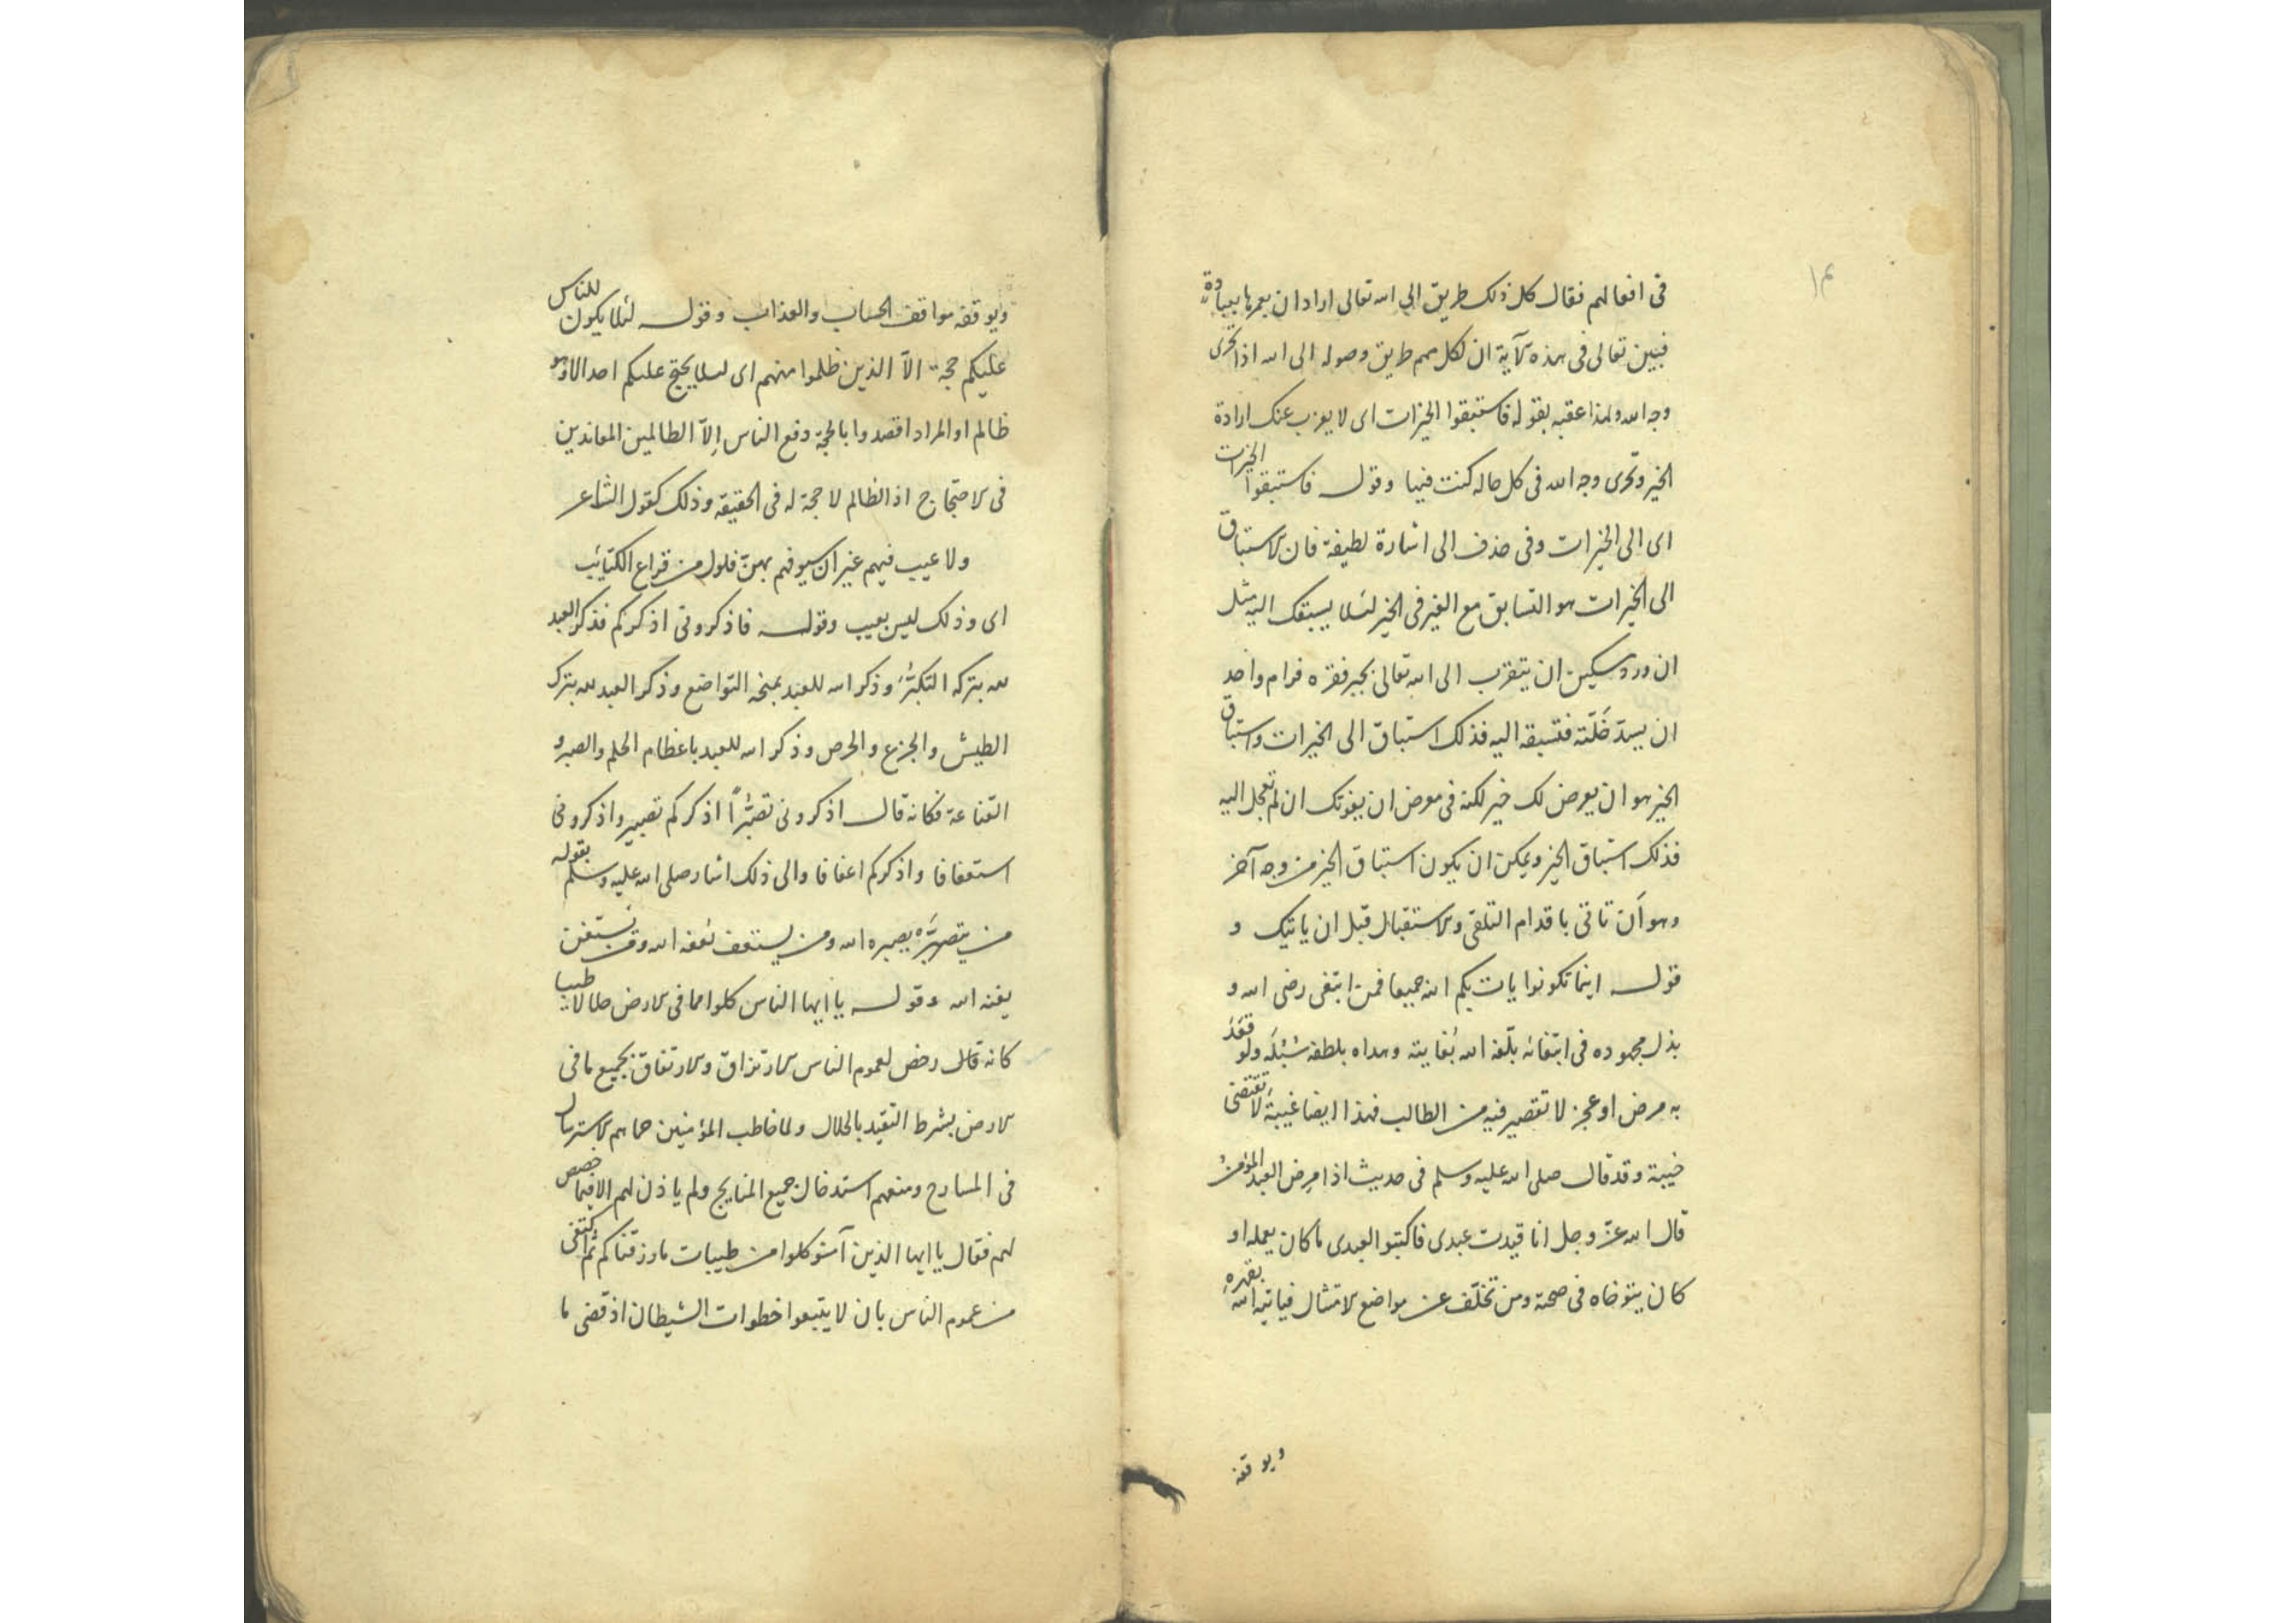 ١٤
فى افعالهم فقال كل ذلك طريق الى الله تعالى اراد ان يعمرها بعباده
فبين تعالى فى هذه الآية ان لكل منهم طريق وصوله الى الله اذا تحرى
وجه الله ولهذا عقبه بقوله فاستبقوا الخيرات اى لا يعزب عنك ارادة
الخير وتحرى وجه الله فى كل حاله كنت فيها وقوله فاستبقوا الخيرات
اى الى الخيرات وفى حذف الى اشارة لطيفة فان الاستباق
الى الخيرات هو التسابق مع الغير فى الخير لئلا يسبقك اليه مثل
ان ورد مسكين ان يتقرب الى الله تعالى بجبر فقره فرام واحد
ان يسدّ خَلّته فتسبقه اليه فذلك استباق الى الخيرات واستباق
الخير هو ان يعرض لك خير لكنه فى معرض ان يفوتك ان لم تعجل اليه
فذلك استباق الخير ويمكن ان يكون استباق الخير من وجه آخر
وهو أن تاتى باقدام التلقى والاستقبال قبل ان ياتيك و
قوله اينما تكونوا يات بكم الله جميعا فمن ابتغى رضى الله و
بذل مجهوده فى ابتغائه بلّغه الله بُغايته وهداه بلطفه سُبُلَه ولو قعَدَ
به مرض او عجز لا تقصير فيه من الطالب فهذا ايضا غيبةٌ لا تقتضى
خيبة وقد قال صلى الله عليه وسلم فى حديث اذا مرِض العبد المؤمن
قال الله عزّ وجل انا قيدت عبدى فاكتبوا لعبدى ما كان يعمله او
كان يتوخاه فى صحته ومن تخلّف عن مواضع الامتثال فياتيه الله بقهره
ويوقفه
ويوقفه مواقف الحساب والعذاب وقوله لئلا يكون للناس
عليكم حجة الاّ الذين ظلموا منهم اى لئلا يحتج عليكم احد الا وهو
ظالم او المراد اقصدوا بالحجة دفع الناس اِلاّ الظالمين المعاندين
فى الاحتجاج اذ الظالم لا حجة له فى الحقيقة وذلك كقول الشاعر
ولا عيب فيهم غير ان سيوفهم بهنّ فلول من قراع الكتائب
اى وذلك ليس بعيب وقوله فاذكرونى اذكركم فذكر العبد
لله بتركه التكبّر وذكر الله للعبد بمنحه التواضع وذكر العبد لله بترك
الطيش والجزع والحرص وذكر الله للعبد باعظام الحلم والصبر و
القناعة فكانه قال اذكرونى تصبّراً اذكركم تصبير واذكرونى
استعفافا واذكركم اعفافا والى ذلك اشار صلى الله عليه وسلم بقوله
من يتصبّر يصبره الله ومن يستعفف يعفه الله ومن يستغن
يغنه الله وقوله يا ايها الناس كلوا مما فى الارض حلالا طيبا
كانه قال رخص لعموم الناس الارتزاق والارتفاق بجميع ما فى
الارض بشرط التقيّد بالحلال ولما خاطب المؤمنين حماهم الاسترسال
فى المسارح ومنعهم استدخال جميع المنايح ولم ياذن لهم الا فيما خصص
لهم فقال يا ايها الذين آمنو كلوا من طيبات ما رزقناكم ثم اكتفى
من عموم الناس بان لا يتبعوا خطوات الشيطان اذ قضى ما